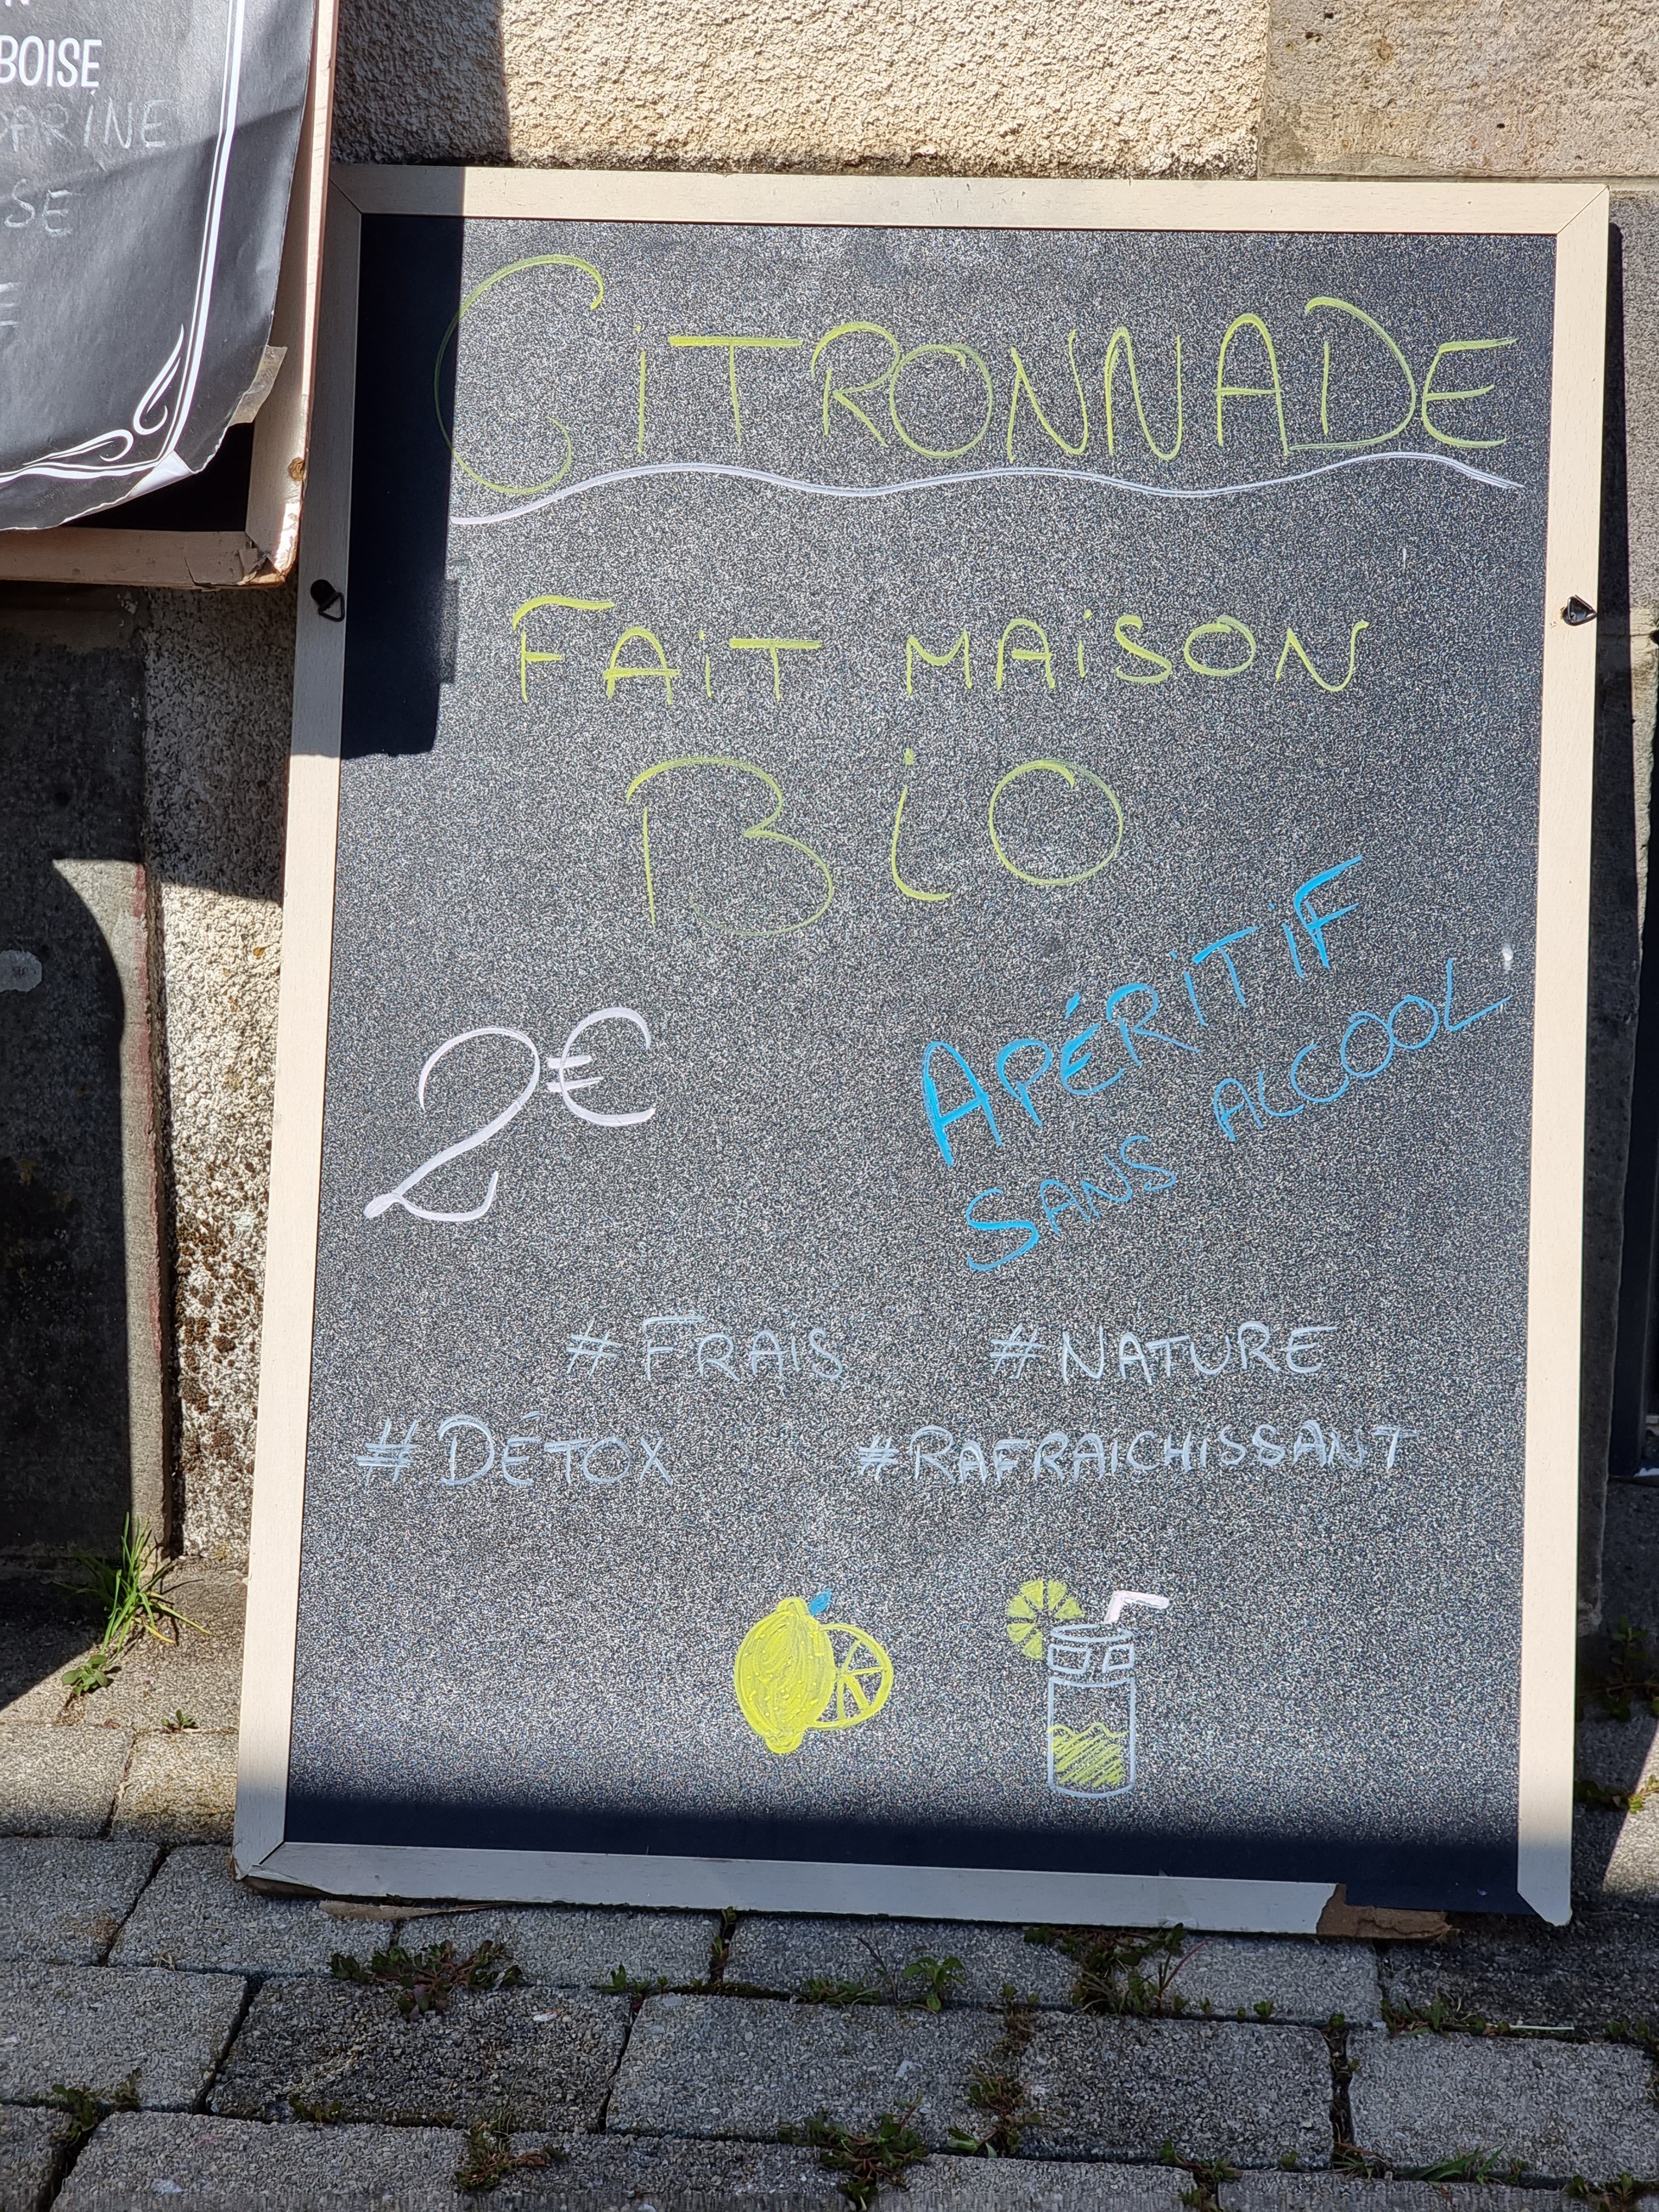 BOISE
CITRONNADE
FAIT MAISON
BIO
2€
APÉRITIF
SANS ALCOOL
#FRAIS #NATURE
#DÉTOX #RAFRAICHISSANT